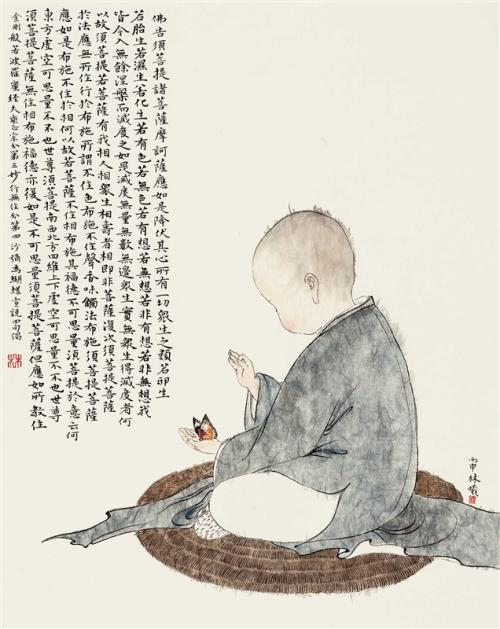 佛告須菩提諸菩薩摩訶薩應如是降伏其心所有一切眾生之類若卵生
若胎生若濕生若化生若有色若無色若有想若無想若非有想若非無想我
皆令入無餘涅槃而滅度之如是滅度無量無數無邊眾生實無眾生得滅度者何
以故須菩提若菩薩有我相人相眾生相壽者相即非菩薩復次須菩提菩薩
於法應無所住行於布施所謂不住色布施不住聲香味觸法布施須菩提菩薩
應如是布施不住於相何以故若菩薩不住相布施其福德不可思量須菩提於意云何
東方虛空可思量不不也世尊須菩提南西北方四維上下虛空可思量不不也世尊
須菩提菩薩無住相布施福德亦復如是不可思量須菩提菩薩但應如所教住
金剛般若波羅蜜經大乘正宗分第三妙行無住分第四沙彌為蝴蝶宣說四句偈
丙申林曦